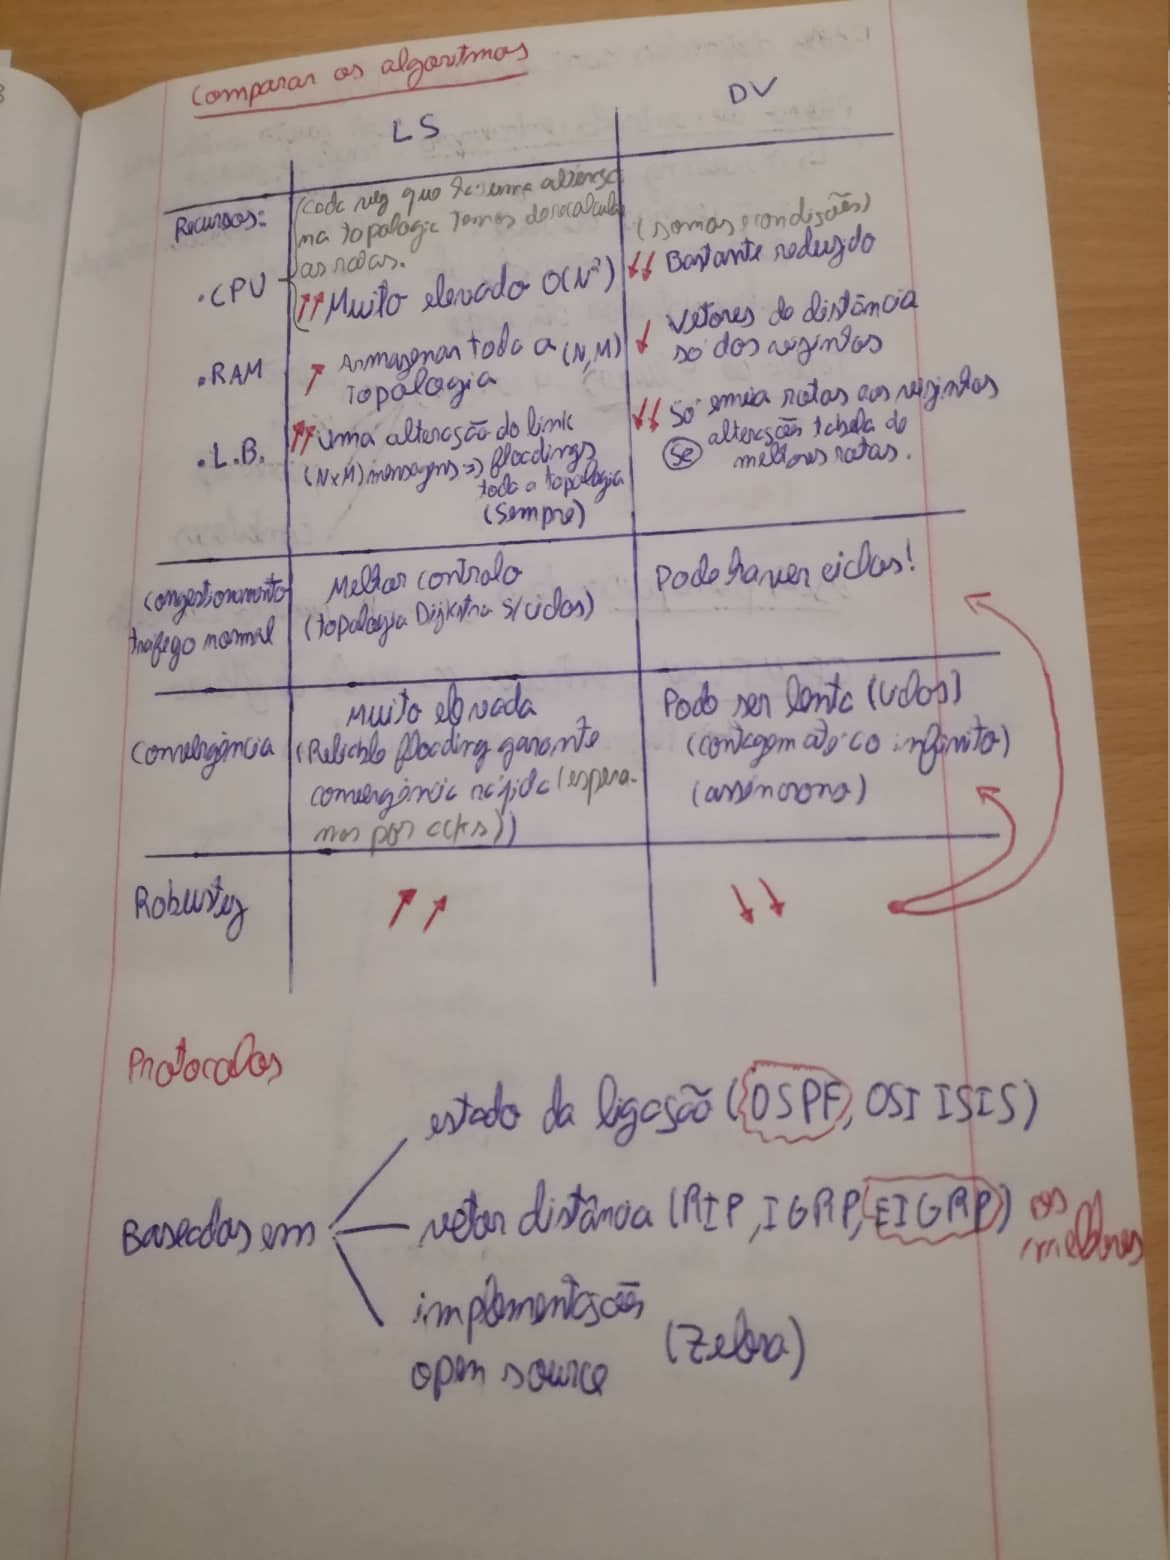 Comparar os algoritmos
LS
DV
Recursos:
(Cada vez que há uma alteração
na topologia temos de recalcular
as rotas.
(somas e condições)
. CPU
↑↑ Muito elevado O(N²)
↓↓ Bastante reduzido
. RAM
↑ Armazenar toda a (N,M)
topologia
↓ Vetores de distância
só dos vizinhos
. L.B.
↑↑ Uma alteração do link
(N×M) mensagens => floodings
toda a topologia
(Sempre)
↓↓ Só envia rotas aos vizinhos
Se alterações tabela de
melhores rotas.
Congestionamento
tráfego normal
Melhor controlo
(topologia Dijkstra s/ciclos)
Pode haver ciclos!
Convergência
Muito elevada
(Reliable flooding garante
convergência rápida (espera-
mos por acks))
Pode ser lenta (ciclos)
(contagem até ao infinito)
(assíncrono)
Robustez
↑↑
↓↓
Protocolos
Baseados em
estado da ligação (OSPF, OSI ISIS)
vetor distância (RIP, IGRP, EIGRP) os
melhores
implementações
open source (Zebra)